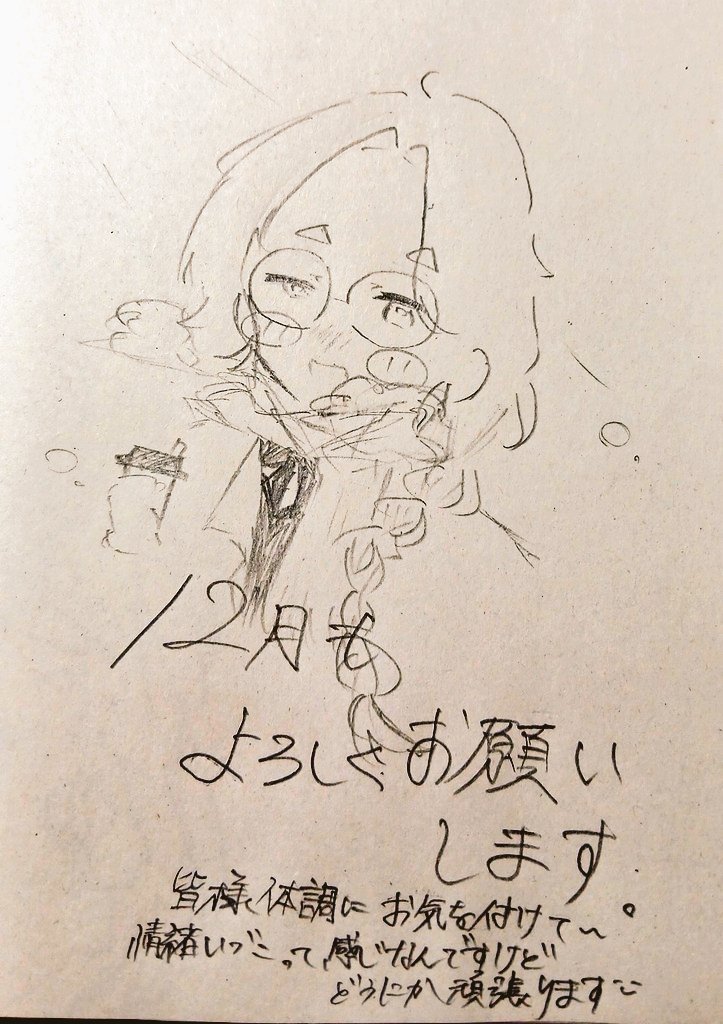 12月も
よろしくお願い
します。
皆様、体調にお気を付けて〜
情緒いづこって感じなんですけど
どうにか頑張ります